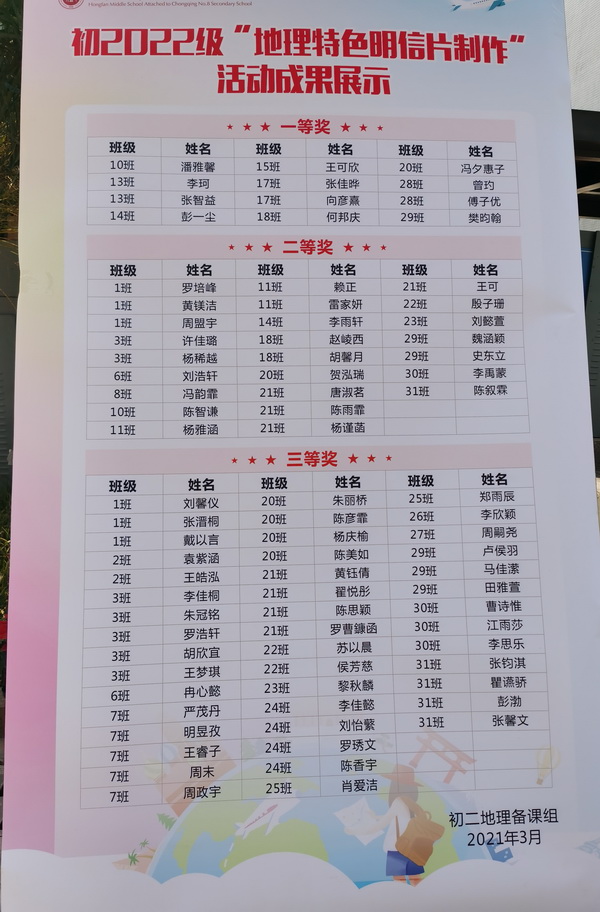 Hunglan Middle School Attached to Chongqing No.8 Secondary School
初2022级“地理特色明信片制作”
活动成果展示
★ ★ ★ 一等奖 ★ ★ ★
班级 姓名 班级 姓名 班级 姓名
10班 潘雅馨 15班 王可欣 20班 冯夕惠子
13班 李珂 17班 张佳晔 28班 曾玓
13班 张智益 17班 向彦熹 28班 傅子优
14班 彭一尘 18班 何邦庆 29班 樊昀翰
★ ★ ★ 二等奖 ★ ★ ★
班级 姓名 班级 姓名 班级 姓名
1班 罗培峰 11班 赖正 21班 王可
1班 黄镁洁 11班 雷家妍 22班 殷子珊
1班 周盟宇 14班 李雨轩 23班 刘懿萱
3班 许佳璐 18班 赵崚西 29班 魏涵颖
3班 杨稀越 18班 胡馨月 29班 史东立
6班 刘浩轩 20班 贺泓瑞 30班 李禹蒙
8班 冯韵霏 21班 唐淑茗 31班 陈叙霖
10班 陈智谦 21班 陈雨霏
11班 杨雅涵 21班 杨谨菡
★ ★ ★ 三等奖 ★ ★ ★
班级 姓名 班级 姓名 班级 姓名
1班 刘馨仪 20班 朱丽桥 25班 郑雨辰
1班 张湣桐 20班 陈彦霏 26班 李欣颖
1班 戴以言 20班 杨庆榆 27班 周嗣尧
2班 袁紫涵 20班 陈美如 29班 卢侯羽
2班 王皓泓 21班 黄钰倩 29班 马佳潆
3班 李佳桐 21班 翟悦彤 29班 田雅萱
3班 朱冠铭 21班 陈思颖 30班 曹诗惟
3班 罗浩轩 21班 罗曹鐮函 30班 江雨莎
3班 胡欣宜 22班 苏以晨 30班 李思乐
3班 王梦琪 22班 侯芳慈 31班 张钧淇
6班 冉心懿 23班 黎秋麟 31班 瞿谣骄
7班 严茂丹 24班 李佳懿 31班 彭渤
7班 明昱孜 24班 刘怡繁 31班 张馨文
7班 王睿子 24班 罗琇文
7班 周末 24班 陈香宇
7班 周政宇 25班 肖爱洁
初二地理备课组
2021年3月